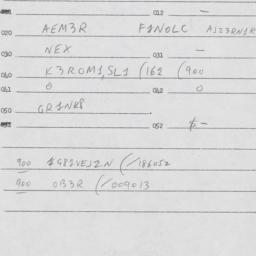 012 –
020 AEM3R F1NOLC A123RN1R
030 NEX 031 –
040 K3ROM1,SL1 (162 (900
041 0 042 0
050 GR1NK8
052 $–
900 1G81VEJ2N (/186052
900 0B3R (/009013